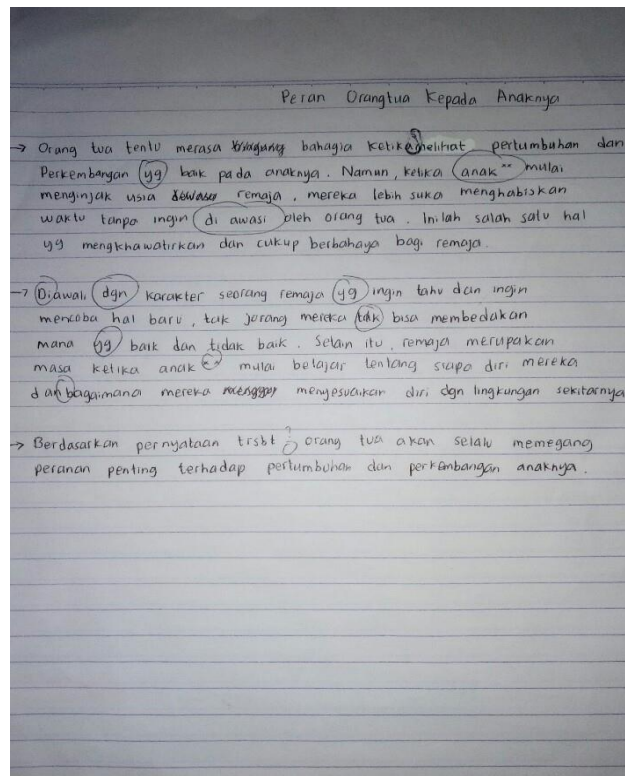 Peran Orangtua Kepada Anaknya
→ Orang tua tentu merasa bahagia ketika melihat pertumbuhan dan
Perkembangan yg baik pada anaknya. Namun, ketika anak" mulai
menginjak usia dewasa remaja, mereka lebih suka menghabiskan
waktu tanpa ingin di awasi oleh orang tua. Inilah salah satu hal
yg mengkhawatirkan dan cukup berbahaya bagi remaja.
→ Diawali dgn karakter seorang remaja yg ingin tahu dan ingin
mencoba hal baru, tak jarang mereka tdk bisa membedakan
mana yg baik dan tidak baik. Selain itu, remaja merupakan
masa ketika anak" mulai belajar tentang siapa diri mereka
dan bagaimana mereka menyesuaikan diri dgn lingkungan sekitarnya
→ Berdasarkan pernyataan trsbt ? orang tua akan selalu memegang
peranan penting terhadap pertumbuhan dan perkembangan anaknya.